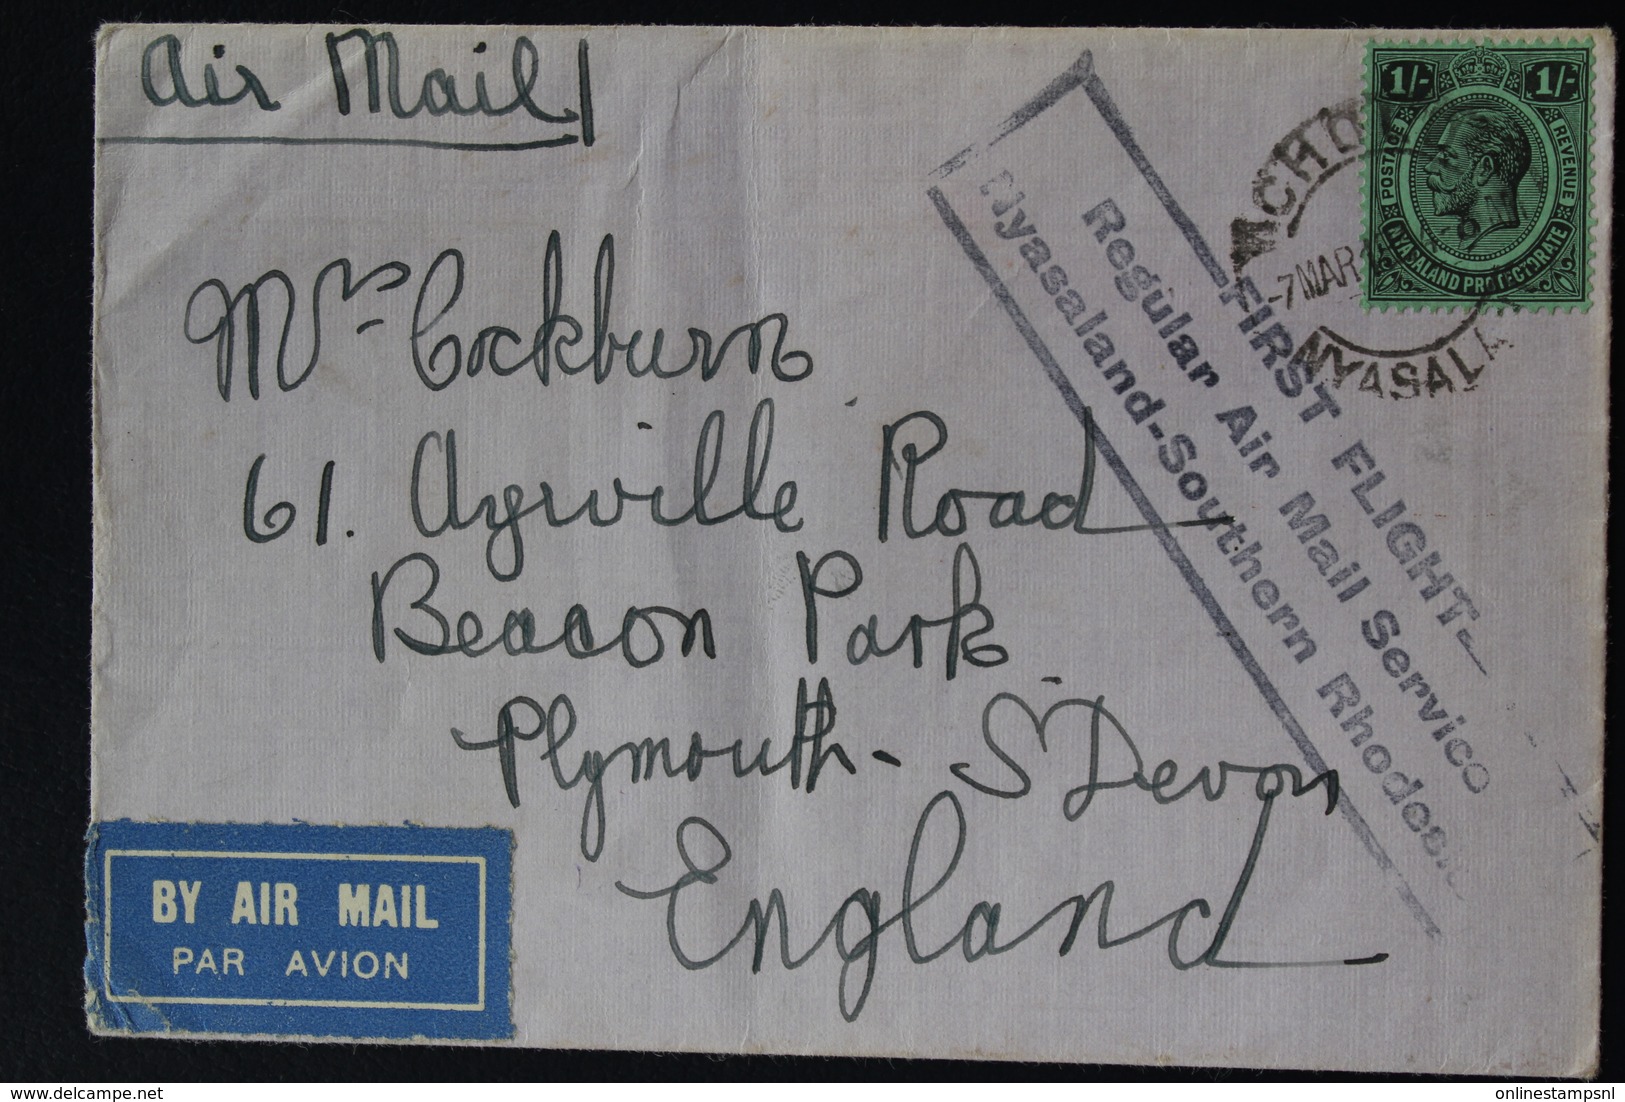 Air Mail
1/- 1/-
POSTAGE REVENUE
NYASALAND PROTECTORATE
-7 MAR
FIRST FLIGHT-
Regular Air Mail Service
Nyasaland-Southern
Mrs Cockburn
61. Ayrville Road
Beacon Park
Plymouth- S Devon
England
BY AIR MAIL
PAR AVION
onlinestampsnl